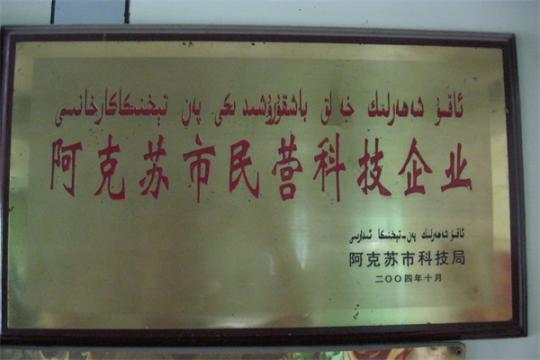 ئاقسۇ شەھەرلىك خەلق باشقۇرۇشىدىكى پەن تېخنىكا كارخانىسى
阿克苏市民营科技企业
ئاقسۇ شەھەرلىك پەن-تېخنىكا ئىدارىسى
阿克苏市科技局
二〇〇四年十月